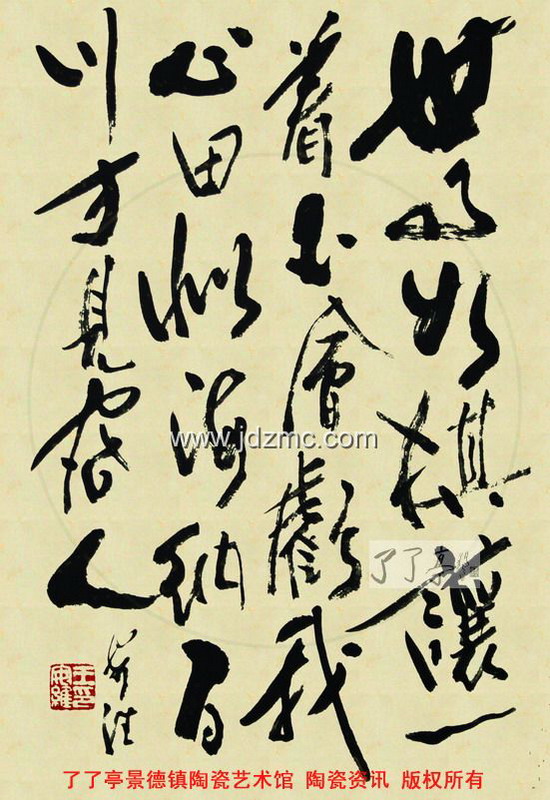 世事如棋讓一
著不會虧我
心田似海納百
川方見容人
www.jdzmc.com
了了亭
了了亭景德镇陶瓷艺术馆 陶瓷资讯 版权所有